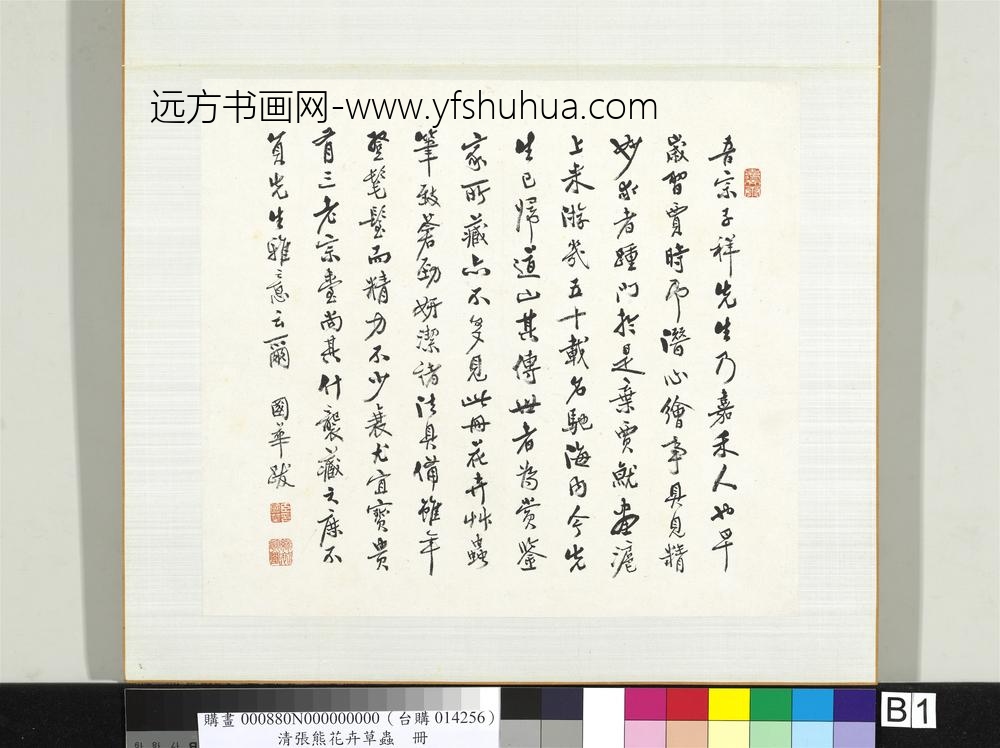 远方书画网-www.yfshuhua.com
吾宗子祥先生乃嘉禾人也早
歲習賈時即潛心繪事具見精
妙求者踵門於是棄賈鬻畫滬
上來游幾五十載名馳海內今先
生已歸道山其傳世者為賞鑒
家所藏亦不多見此冊花卉艸蟲
筆致蒼勁妍潔諸法具備雖年
登耄耋而精力不少衰尤宜寶貴
有三老宗臺尚其什襲藏之庶不
負先生雅意云爾 國華跋
購畫 000880N000000000 (台購 014256)
清張熊花卉草蟲 冊
B 1
B 17 18 19